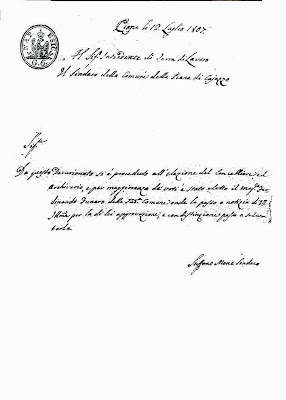 G. 6.
Piana li 12 Luglio 1807.
Al Sig.r Intendente di Terra di Lavoro
Il Sindaco della Comune della Piana di Cajazzo
Sig.re
Da questo Decurionato si è proceduto all'elezione del Cancelliere, ed
Archivario, e per maggioranza de' voti è stato eletto il Mag.co
della Comune, onde lo passo a notizia di
per la di lei approvazione; e con distinzione passo a salu-
tarla
Sindaco